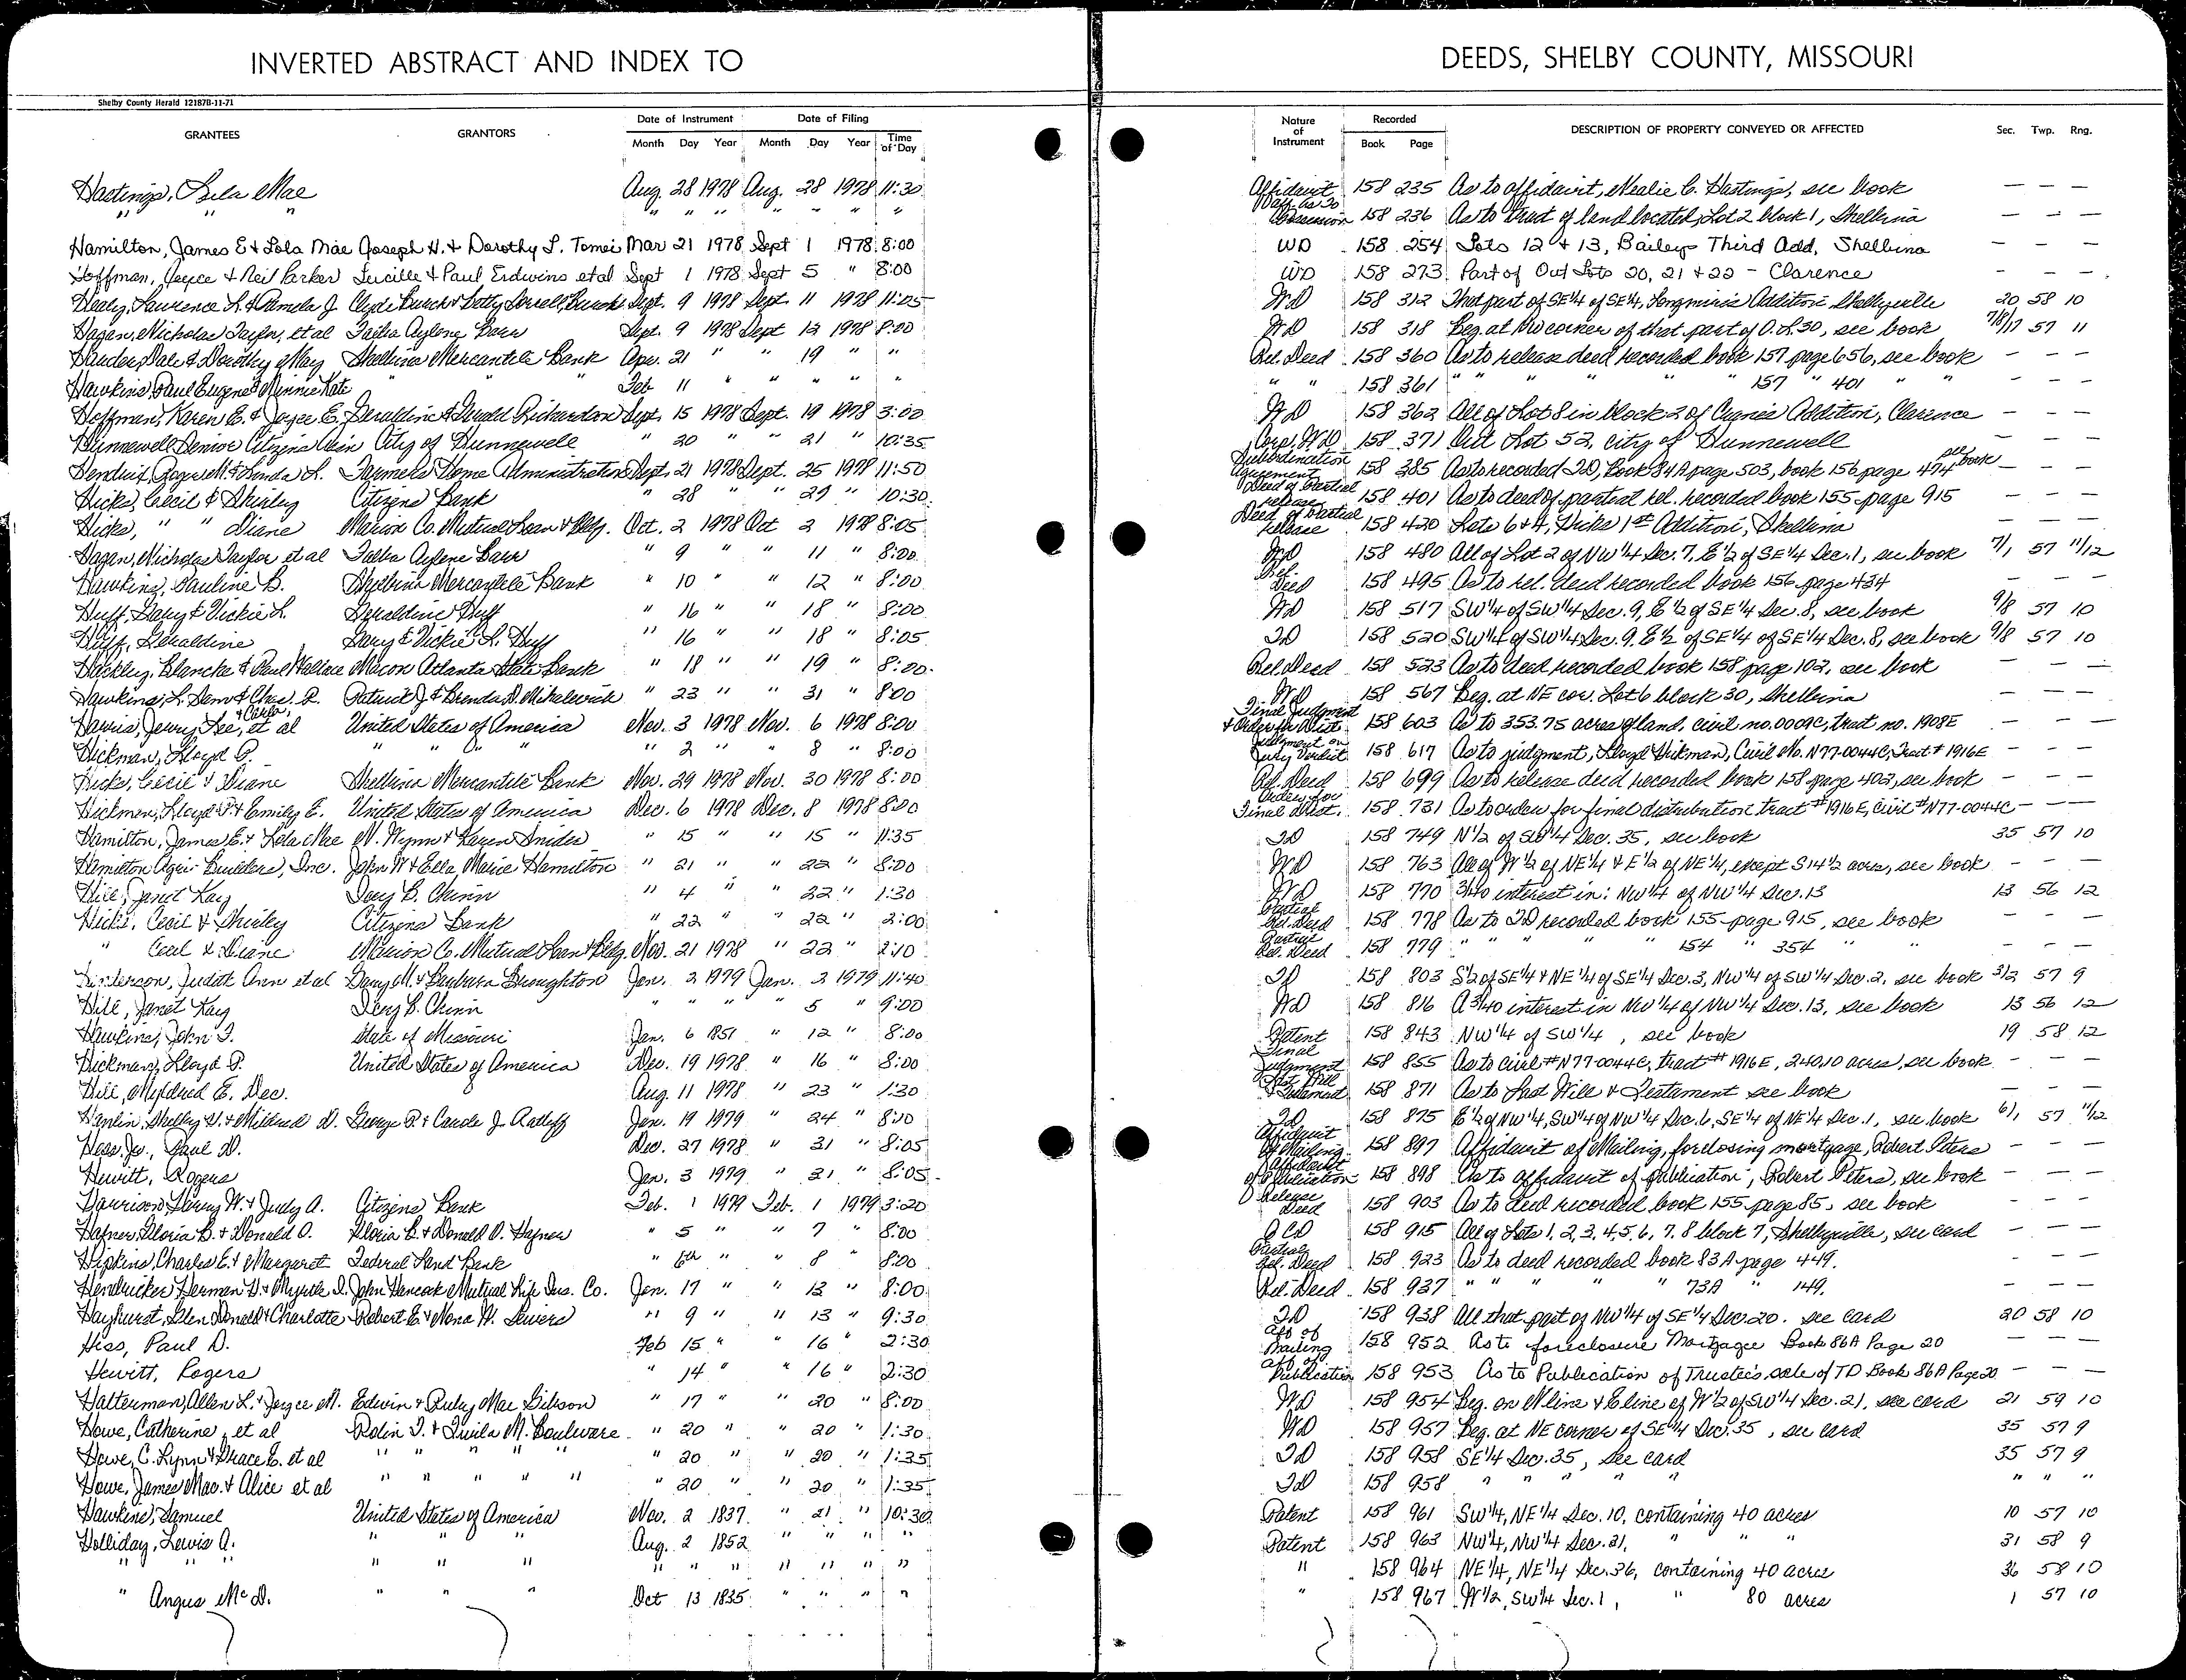 INVERTED ABSTRACT AND INDEX TO DEEDS, SHELBY COUNTY, MISSOURI
Shelby County Herald 12187B-11-71
GRANTEES GRANTORS Date of Instrument Date of Filing Nature of Instrument Recorded DESCRIPTION OF PROPERTY CONVEYED OR AFFECTED Sec. Twp. Rng.
Month Day Year Month Day Year Time of Day Book Page
Hastings, Lela Mae Aug. 28 1978 Aug. 28 1978 11:30 Affidavit 158 235 As to affidavit, Nealie C. Hastings, see book — — —
" " " " " " " " " " Aff. As To Possession 158 236 As to tract of land located, Lot 2 block 1, Shelbina — — —
Hamilton, James E & Lola Mae Joseph H. & Dorothy L. Tomei Mar 21 1978 Sept 1 1978 8:00 WD 158 254 Lots 12 & 13, Baileys Third Add, Shelbina — — —
Hoffman, Joyce & Neil Parker Lucille & Paul Erdwins etal Sept 1 1978 Sept 5 " 8:00 WD 158 273 Part of Out Lots 20, 21 & 22 - Clarence — — —
Healy, Lawrence L. & Pamela J. Clyde Burch & Betty Burch Sept. 9 1978 Sept. 11 1978 11:05 WD 158 312 That part of SE1/4 of SE1/4, Longmire's Addition Shelbyville 20 58 10
Hagan, Nicholas Taylor, et al Talba Aylene Barr Sept. 9 1978 Sept 12 1978 8:00 WD 158 318 Beg. at NW corner of that part of O.L. 30, see book 7/8/17 57 11
Dale & Dorothy May Shelbina Mercantile Bank Apr. 21 " " 19 " " Rel. Deed 158 360 As to release deed recorded book 157 page 656, see book — — —
Hawkins, Paul Eugene & Minnie Kate " " " Feb 11 " " " " " " " 158 361 " " " " " 157 " 401 " " — — —
Hoffman, Karen E. & Joyce E. Geraldine & Gerald Richardson Sept. 15 1978 Sept. 19 1978 3:00 WD 158 362 All of Lot 8 in block 2 of Crane's Addition, Clarence — — —
Hunnewell Senior Citizens City of Hunnewell " 20 " " 21 " 10:35 Corp. WD 158 371 Out Lot 52, city of Hunnewell — — —
Roger M. & Linda L. Farmers Home Administration Sept. 21 1978 Sept. 25 1978 11:50 Subordination Agreement 158 385 As to recorded TD, Book 84A page 503, book 156 page 474 see book — — —
Hicks, Cecil & Shirley Citizens Bank " 28 " " 29 " 10:30 Deed of Partial release 158 401 As to deed of partial rel. recorded book 155 page 915 — — —
Hicks, " " Diane Marion Co. Mutual Loan & Bldg. Oct. 2 1978 Oct 2 1978 8:05 Deed of Partial release 158 420 Lots 6 & A, Hicks 1st Addition, Shelbina — — —
Hagan, Nicholas Taylor et al Talba Aylene Barr " 9 " " 11 " 8:00 WD 158 480 All of Lot 2 of NW 1/4 Sec. 7, E 1/2 of SE 1/4 Sec. 1, see book 7/1 57 11/12
Hawkins, Pauline B. Shelbina Mercantile Bank " 10 " " 12 " 8:00 Rel. Deed 158 495 As to rel. deed recorded book 156 page 434 — — —
Huff, Gary & Vickie L. Geraldine Huff " 16 " " 18 " 8:00 WD 158 517 SW 1/4 of SW 1/4 Sec. 9, E 1/2 of SE 1/4 Sec. 8, see book 9/8 57 10
Huff, Geraldine Gary & Vickie L. Huff " 16 " " 18 " 8:05 TD 158 520 SW 1/4 of SW 1/4 Sec. 9, E 1/2 of SE 1/4 of SE 1/4 Sec. 8, see book 9/8 57 10
Hackley, Blanche & Paul Wallace Macon Atlanta State Bank " 18 " " 19 " 8:00 Rel. Deed 158 523 As to deed recorded book 158 page 102, see book — — —
Hawkins, L. Glenn & Chas. R. Patrick J. & Brenda D. Mihalevich " 23 " " 31 " 8:00 WD 158 567 Beg. at NE cor. Lot 6 block 30, Shelbina — — —
Harris, Jerry Lee, & Carla, et al United States of America Nov. 3 1978 Nov. 6 1978 8:00 Final Judgment & Order for Dist. 158 603 As to 353.75 acres of land, civil no. 0009C, tract no. 1908E — — —
Hickman, Lloyd P. " " " " " 2 " " 8 " 8:00 Judgment on Jury Verdict 158 617 As to judgment, Lloyd Hickman, Civil No. N77-0044C, Tract # 1916E — — —
Hicks, Cecil & Diane Shelbina Mercantile Bank Nov. 29 1978 Nov. 30 1978 8:00 Rel. Deed 158 699 As to release deed recorded book 158 page 402, see book — — —
Hickman, Lloyd P. & Emily E. United States of America Dec. 6 1978 Dec. 8 1978 8:00 Order for Final Dist. 158 731 As to order for final distribution tract #1916E, Civil #N77-0044C — — —
Hamilton, James E. & Lola Mae N. Wynn & Karen Snider " 15 " " 15 " 11:35 TD 158 749 N 1/2 of SW 1/4 Sec. 35, see book 35 57 10
Hamilton Agri-Builders, Inc. John W & Ella Marie Hamilton " 21 " " 22 " 8:00 WD 158 763 All of W 1/2 of NE 1/4 & E 1/2 of NE 1/4, except S 14 1/2 acres, see book — — —
Hill, Janet Kay B. Chinn " 4 " " 22 " 1:30 WD 158 770 3/40 interest in: NW 1/4 of NW 1/4 Sec. 13 13 56 12
Hicks, Cecil & Shirley Citizens Bank " 22 " " 22 " 2:00 Partial Rel. Deed 158 778 As to TD recorded book 155 page 915, see book — — —
" Cecil & Diane Marion Co. Mutual Loan & Bldg. Nov. 21 1978 " 22 " 2:10 Partial Rel. Deed 158 779 " " " " 154 " 354 " " — — —
Judith Ann et al Gary M. & Barbara Broughton Jan. 2 1979 Jan. 2 1979 11:40 TD 158 803 S 1/2 of SE 1/4 & NE 1/4 of SE 1/4 Sec. 3, NW 1/4 of SW 1/4 Sec. 2, see book 3/2 57 9
Hill, Janet Kay B. Chinn " " " " 5 " 9:00 WD 158 816 A 3/40 interest in NW 1/4 of NW 1/4 Sec. 13, see book 13 56 12
Hawkins, John T. State of Missouri Jan. 6 1851 " 12 " 8:00 Patent 158 843 NW 1/4 of SW 1/4, see book 19 58 12
Hickman, Lloyd P. United States of America Dec. 19 1978 " 16 " 8:00 Final Judgment 158 855 As to civil #N77-0044C, tract #1916E, 240.10 acres, see book — — —
Hill, Myldred E. Dec. Aug. 11 1978 " 23 " 1:30 Last Will & Testament 158 871 As to Last Will & Testament see book — — —
Hanlin, Shelby H. & Mildred D. George R. & Carole J. Ratliff Jan. 19 1979 " 24 " 8:00 TD 158 875 E 1/2 of NW 1/4, SW 1/4 of NW 1/4 Sec. 6, SE 1/4 of NE 1/4 Sec. 1, see book 6/1 57 11/12
Hess, Jr., Paul D. Dec. 27 1978 " 31 " 8:05 Affidavit of Mailing 158 897 Affidavit of Mailing, foreclosing mortgage, Robert Peters — — —
Hewitt, Rogers Jan. 3 1979 " 31 " 8:05 Affidavit of Publication 158 898 As to affidavit of publication, Robert Peters, see book — — —
Harrison, Henry W. & Judy A. Citizens Bank Feb. 1 1979 Feb. 1 1979 3:20 Release Deed 158 903 As to deed recorded book 155 page 85, see book — — —
Hafner, Gloria B. & Donald O. Gloria B. & Donald O. Hafner " 5 " " 7 " 8:00 QCD 158 915 All of Lots 1, 2, 3, 4, 5, 6, 7, 8 block 7, Shelbyville, see card — — —
Hipkins, Charles E. & Margaret Federal Land Bank " 6th " " 8 " 8:00 Partial Rel. Deed 158 923 As to deed recorded book 83A page 449. — — —
Hendricker, Herman H. & Myrtle I. John Hancock Mutual Life Ins. Co. Jan. 17 " " 13 " 8:00 Rel. Deed 158 937 " " " " 73A " 149. — — —
Hayhurst, Glen Donald & Charlotte Robert E. & Nona W. Sewers " 9 " " 13 " 9:30 TD 158 938 All that part of NW 1/4 of SE 1/4 Sec. 20. see card 20 58 10
Hess, Paul D. Feb 15 " " 16 " 2:30 Aff of Mailing 158 952 As to foreclosure Mortgagee Book 86A Page 20 — — —
Hewitt, Rogers " 14 " " 16 " 2:30 Aff of Publication 158 953 As to Publication of Trustee's sale of TD Book 86A Page 20 — — —
Halterman, Allen L. & Joyce M. Edwin & Ruby Mae Gibson " 17 " " 20 " 8:00 WD 158 954 Beg. on N line & E line of W 1/2 of SW 1/4 Sec. 21, see card 21 59 10
Howe, Catherine, et al Rolin T. & Twila M. Bouleware " 20 " " 20 " 1:30 WD 158 957 Beg. at NE corner of SE 1/4 Sec. 35, see card 35 57 9
Howe, C. Lynn & Grace E. et al " " " " " " 20 " " 20 " 1:35 TD 158 958 SE 1/4 Sec. 35, see card 35 57 9
Howe, James Mac. & Alice et al " " " " " " 20 " " 20 " 1:35 TD 158 958 " " " " " " " "
Hawkins, Samuel United States of America Nov. 2 1837 " 21 " 10:30 Patent 158 961 SW 1/4, NE 1/4 Sec. 10, containing 40 acres 10 57 10
Holliday, Lewis A. " " " Aug. 2 1852 " " " " Patent 158 963 NW 1/4, NW 1/4 Sec. 31, " " " 31 58 9
" " " " " " " " " " " " " " 158 964 NE 1/4, NE 1/4 Sec. 36, containing 40 acres 36 58 10
" Angus McD. " " " Oct 13 1835 " " " " " 158 967 W 1/2, SW 1/4 Sec. 1, " 80 acres 1 57 10